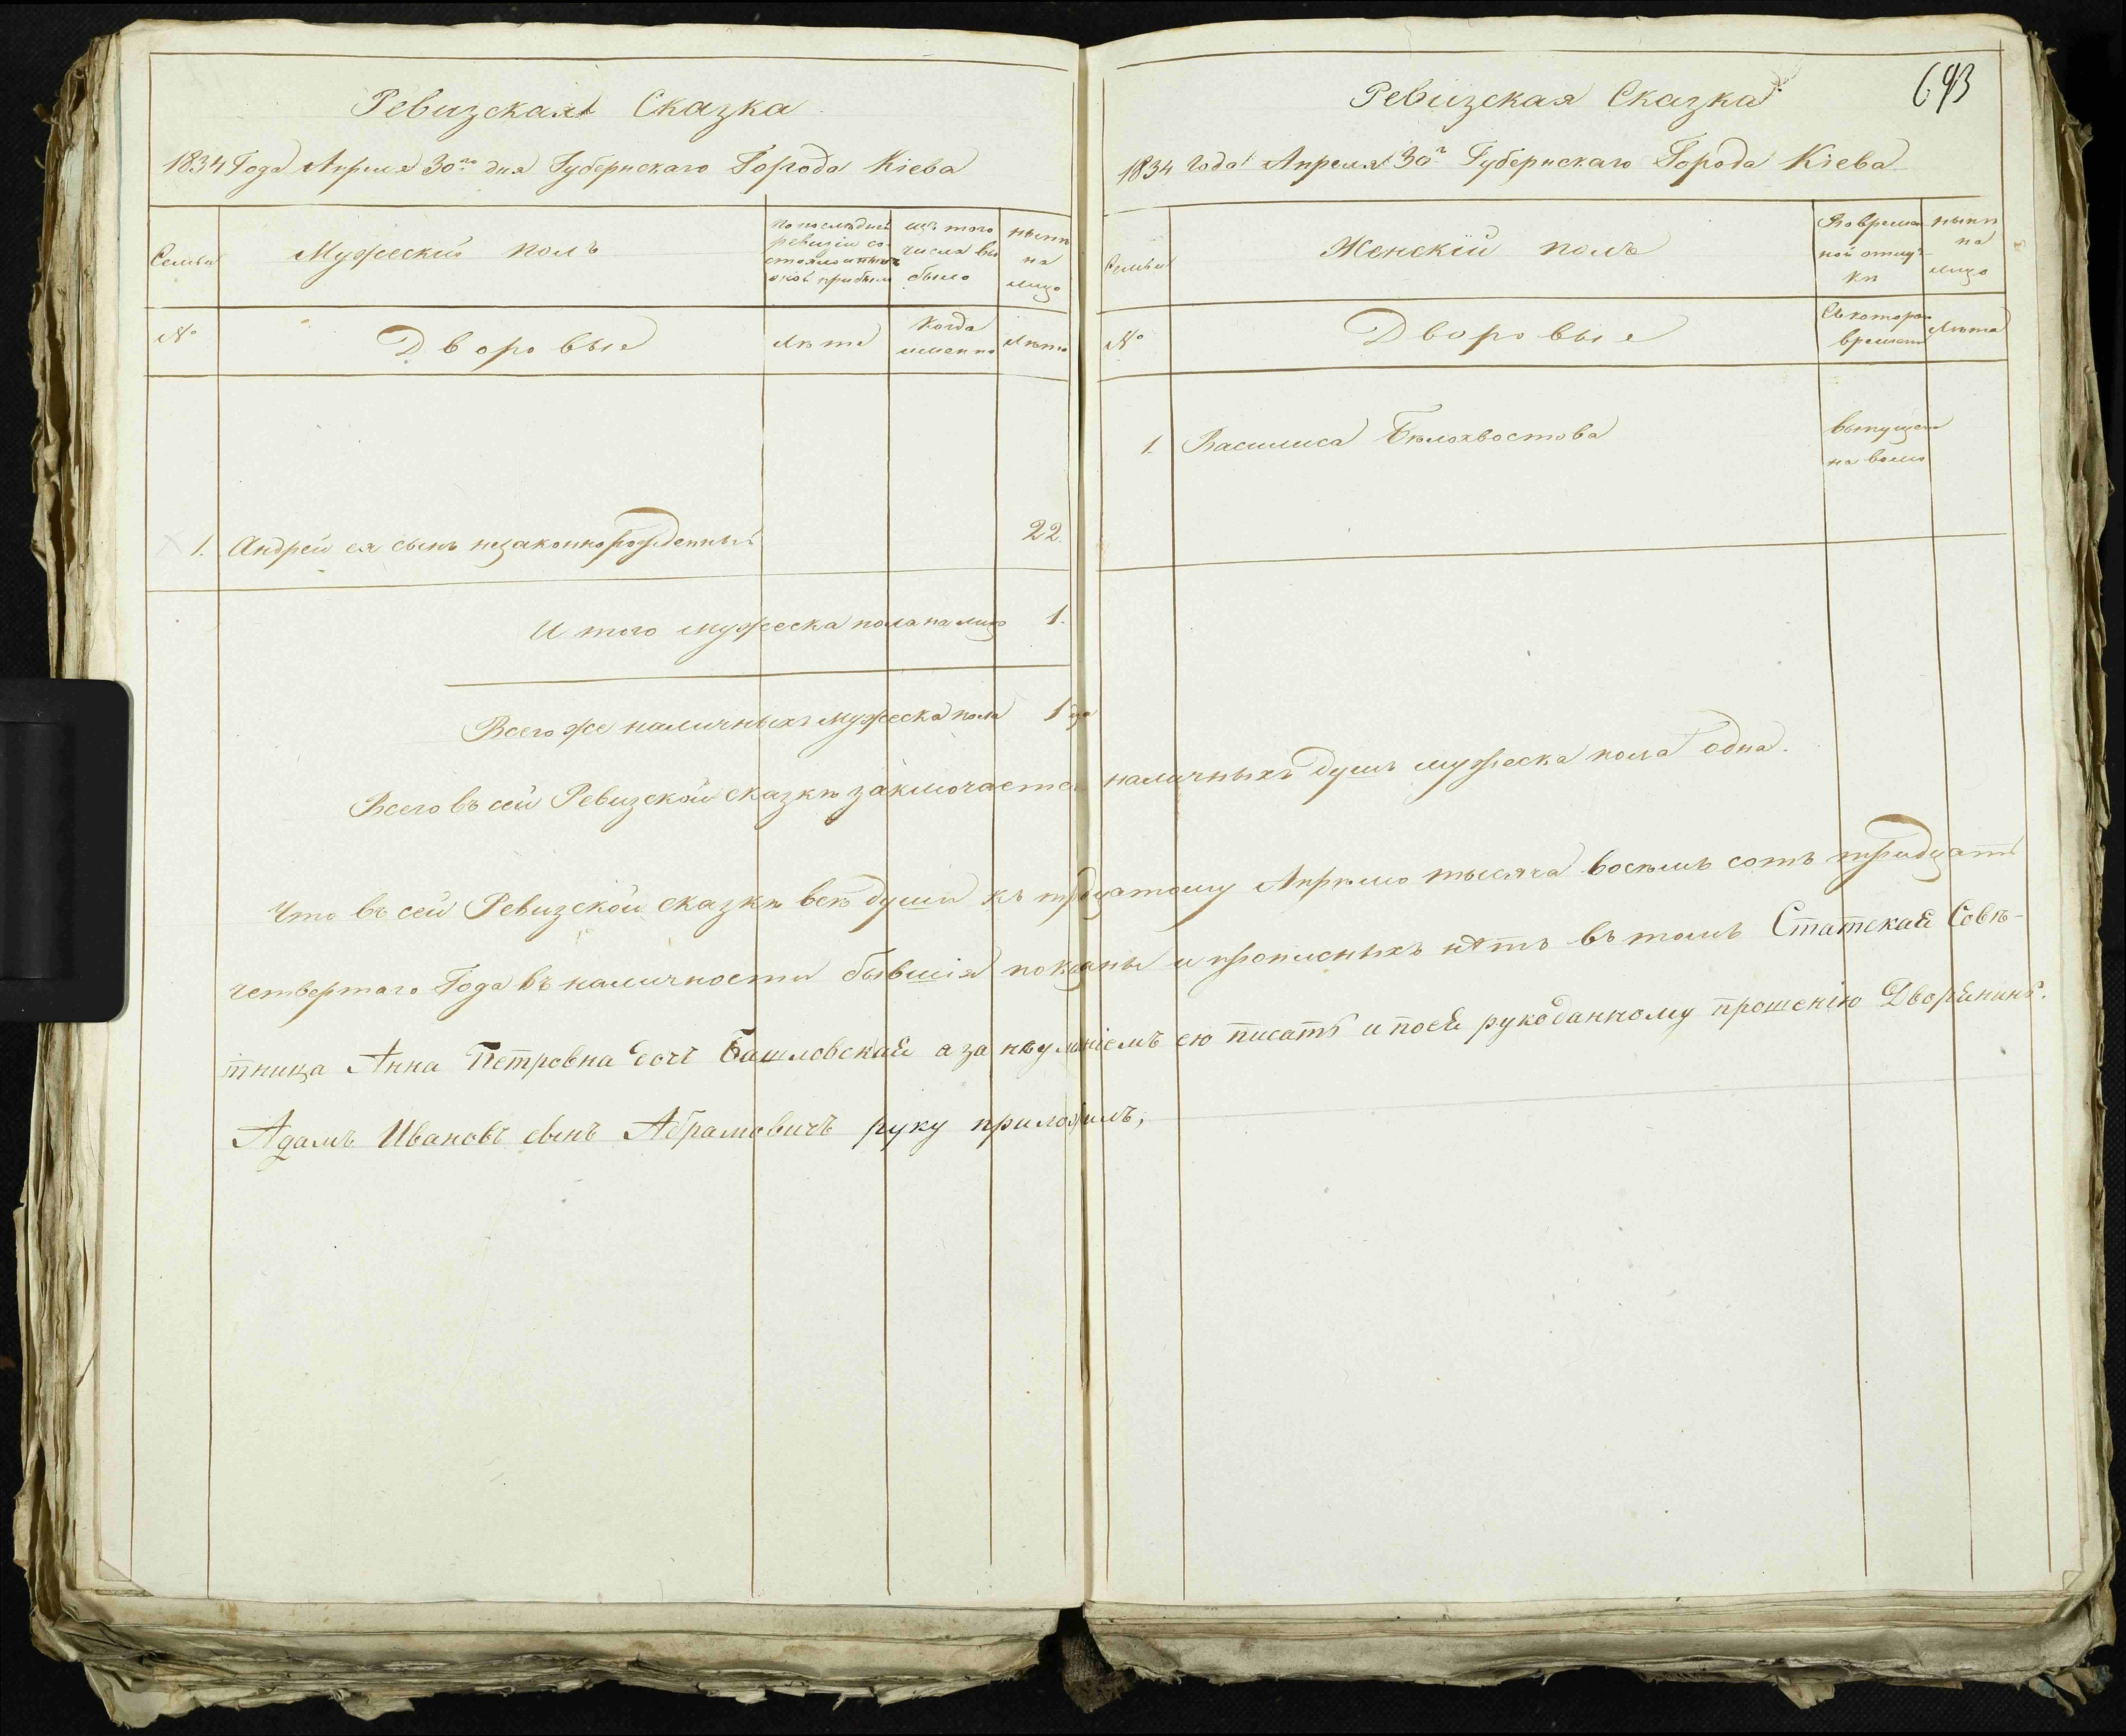 Ревизская Сказка
1834 Года Апреля 30го дня Губернскаго Города Кіева
Семьи
Мужескій полъ
по последней
ревизіи со-
стояло и после
оной прибыло
изъ того
числа вы
было
ныне
на
лицо
№
Дворовые
Лета
Когда
именно
Лета
1. Андрей ея сынъ незаконнорожденный 22.
И того мужеска пола на лицо 1.
Всего же наличныхъ мужеска пола 1
693
Ревизская Сказка
1834 Года Апреля 30го Губернскаго Города Кіева
Семьи
Женскій полъ
Во времен
ной отлуч-
ки
ныне
на
лицо
№
Дворовые
Съ котораго
времени
Лета
1. Василиса Бѣлохвостова
выпущена
на волю
Всего въ сей Ревизской сказкѣ заключается наличныхъ душъ мужеска пола одна.
Что въ сей Ревизской сказкѣ всѣ души къ тридцатому Апрелю тысяча восемь сотъ тридцать
четвертаго Года въ наличности бывшія показаны и прописныхъ нѣтъ въ томъ Статская Совѣ-
тница Анна Петровна дочь Башловская а за неумѣніемъ ею писать и по ей рукоданному прошенію Дворянинъ.
Адамъ Ивановъ сынъ Абрамовичъ руку приложилъ,